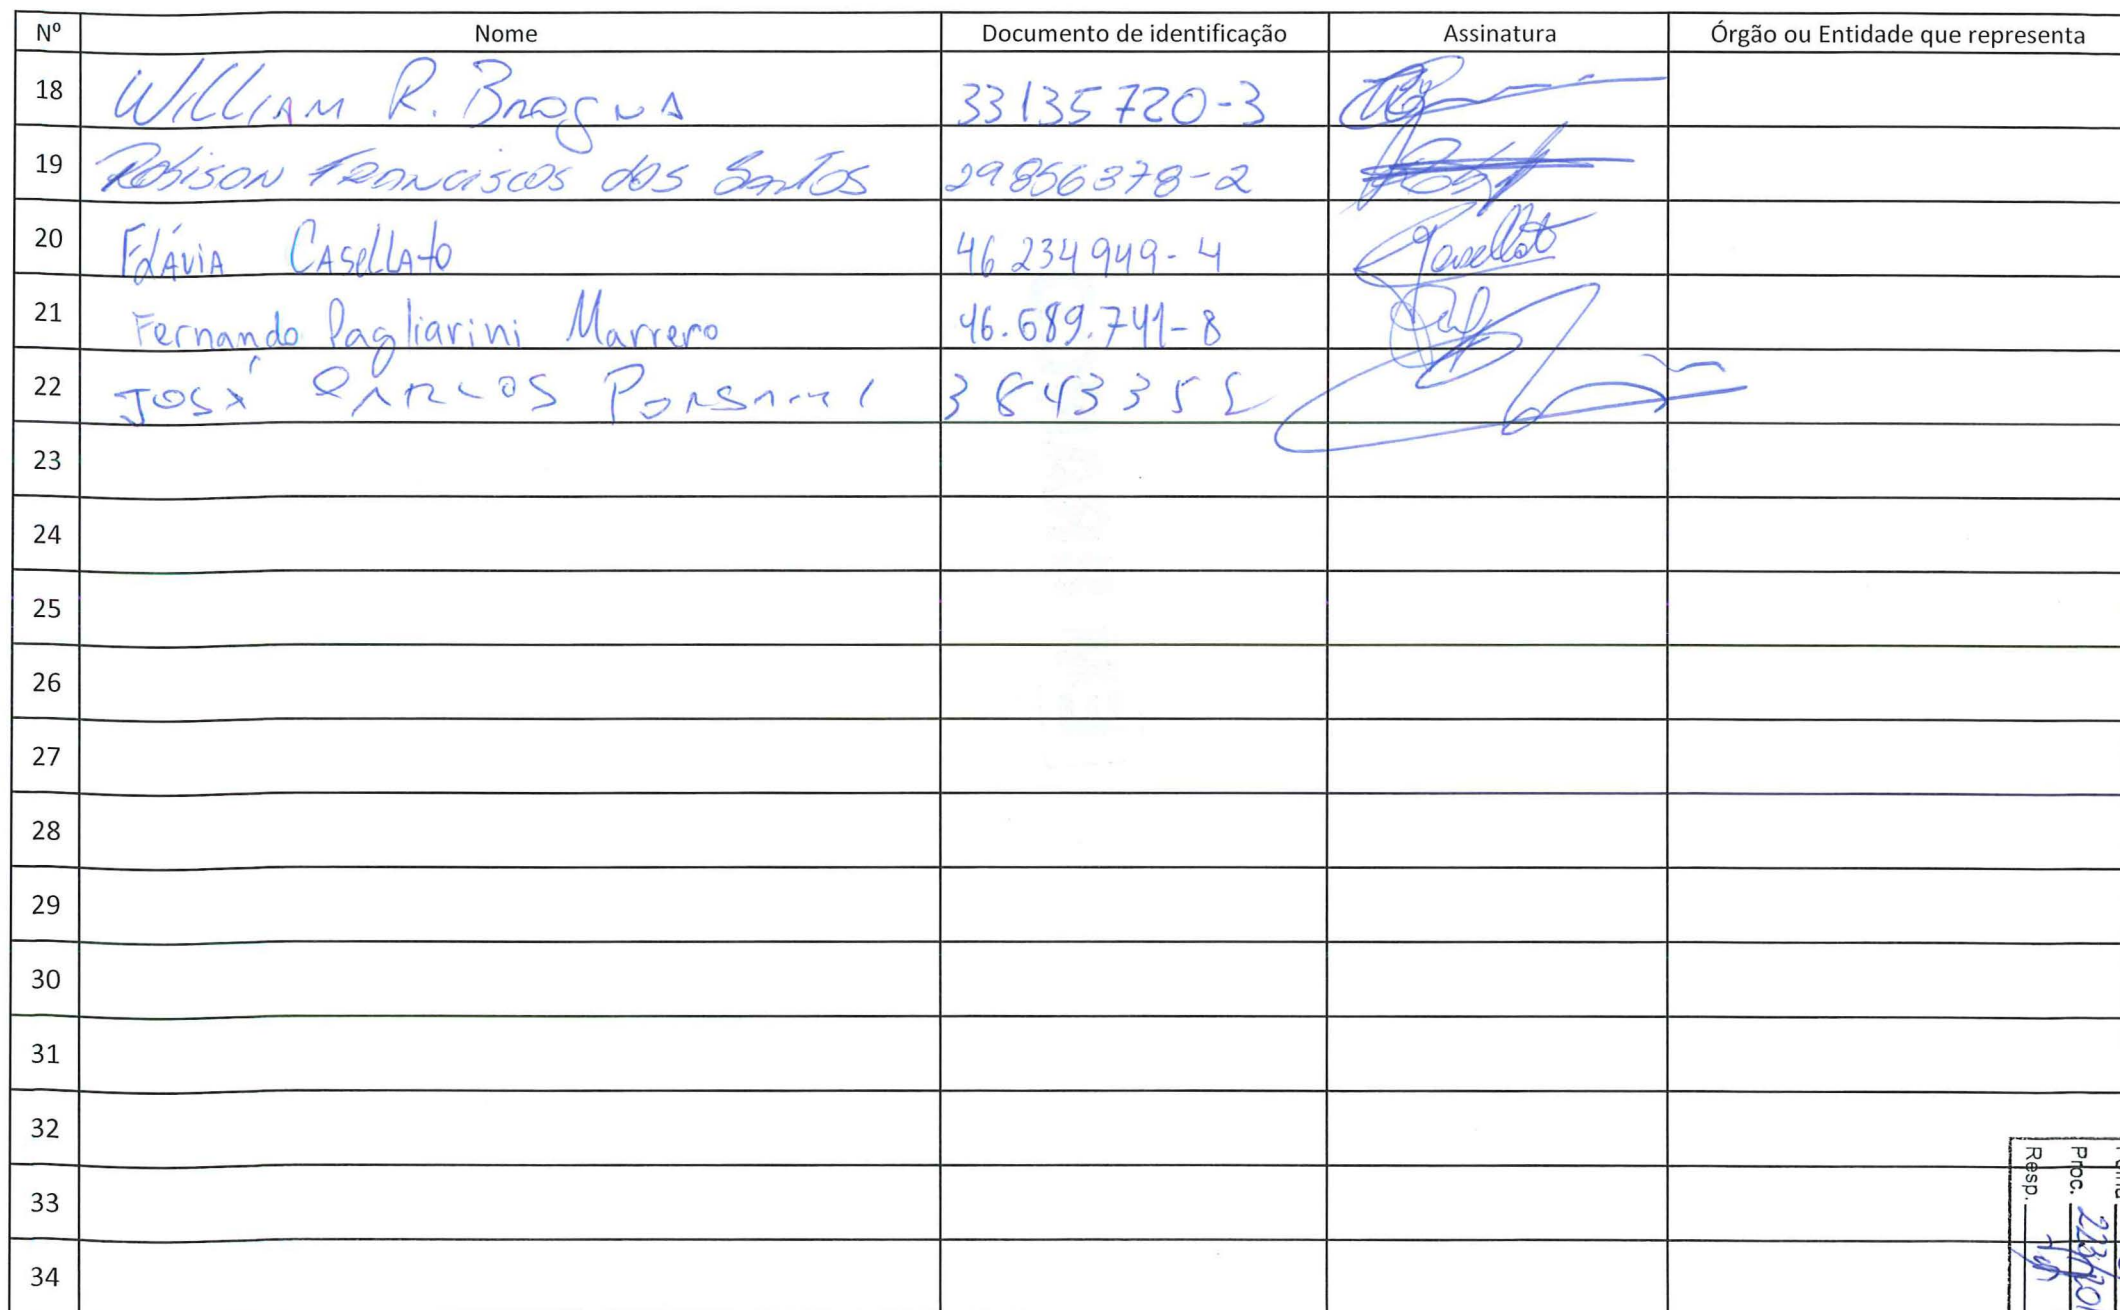 Nº Nome Documento de identificação Assinatura Órgão ou Entidade que representa
18 William R. Brogna 33135720-3
19 Robison Franciscos dos Santos 29856378-2
20 Flávia Casellato 46 234 949-4 Casellato
21 Fernando Pagliarini Marrero 46.689.741-8
22 José Carlos
23
24
25
26
27
28
29
30
31
32
33
34
Proc.
Resp.